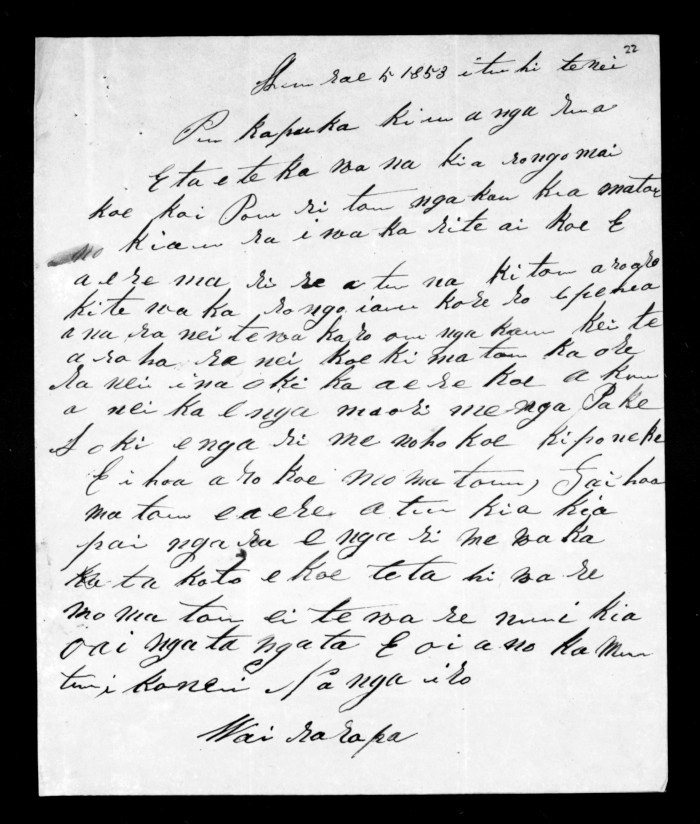 22
Hurae 5 1853 i tu hi te nei
Pu kapuka ki u a nga rua
E ta e te ka wa na kia rongo mai
koe kai Pou ri tou nga kau kia matou
no kiaeu ra i wa ka rite ai koe E
a e re ma ri re a tu na ki tou aroaro
ki te wa ka rongo iaeu kore ro Epehea
a na ra nei te wa ka ro ou nga kau kei te
a ro ha ra nei koe ki ma tou ka ore
ra nei i na o ki ka a e re koe a kuu
a nei ka e nga maori me nga Pake
ha o ki e nga ri me noho koe ki poneke
E i hoa a ro koe mo ma tou, Tai hoa
ma tou e a ere a tu kia kia
pai nga ra e nga ri me wa ka
ta koto e koe te ta hi wa re
mo ma tou ei te wa re nuui kia
o ai nga ta nga ta E oi a no ka mu
tu i konei Na nga i ro
Wai ra ra pa